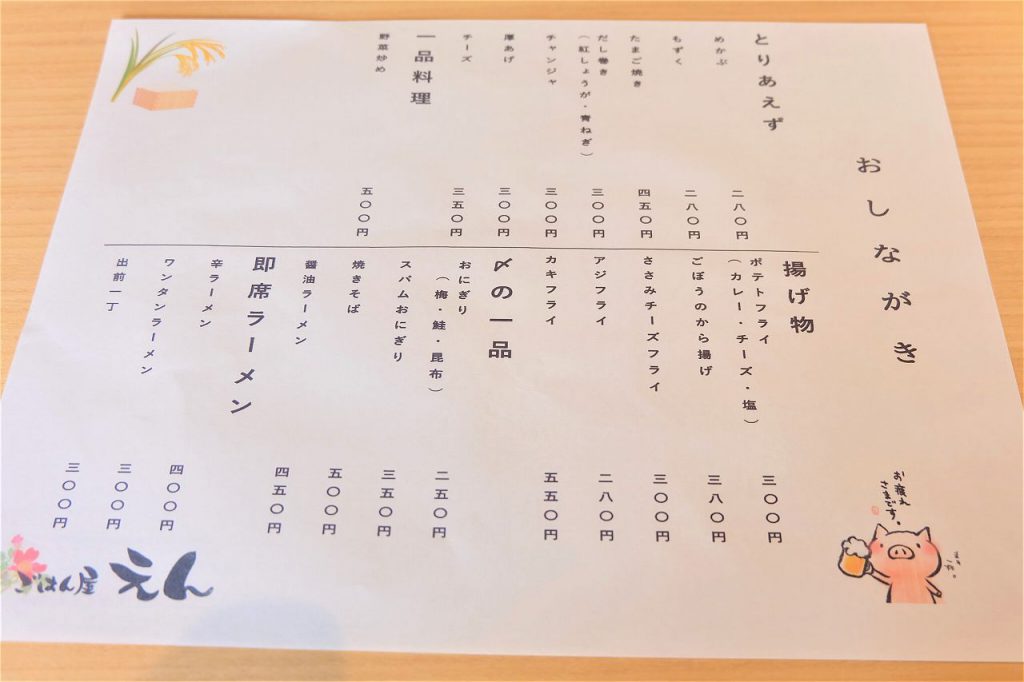 おしながき
とりあえず
めかぶ 二八〇円
もずく 二八〇円
たまご焼き 四五〇円
だし巻き 三〇〇円
（紅しょうが・青ねぎ）
チャンジャ 三〇〇円
厚あげ 三〇〇円
チーズ 三五〇円
一品料理
野菜炒め 五〇〇円
揚げ物
ポテトフライ 三〇〇円
（カレー・チーズ・塩）
ごぼうのから揚げ 三八〇円
ささみチーズフライ 三〇〇円
アジフライ 二八〇円
カキフライ 五五〇円
〆の一品
おにぎり 二五〇円
（梅・鮭・昆布）
スパムおにぎり 三五〇円
焼きそば 五〇〇円
醤油ラーメン 四五〇円
即席ラーメン
辛ラーメン 四〇〇円
ワンタンラーメン 三〇〇円
出前一丁 三〇〇円
お疲れ
さまです。
ごはん屋 えん